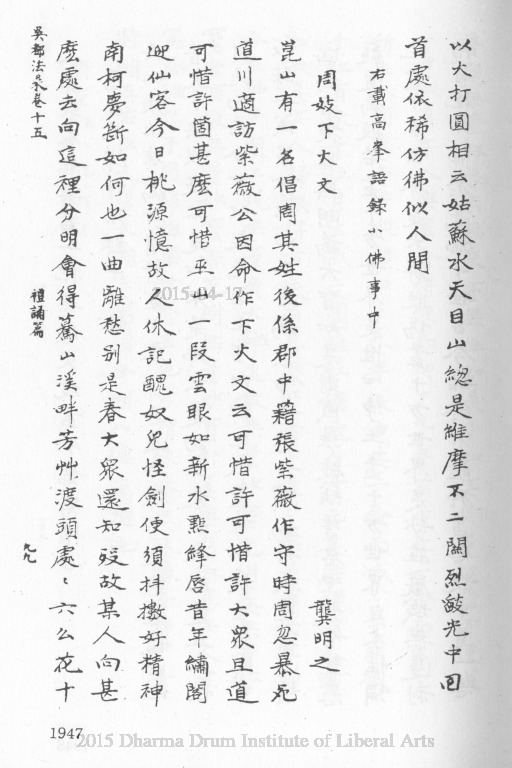 以火打圓相云姑蘇水天目山總是維摩不二關烈燄光中回
首處依稀仿佛似人間
右載高峯語錄小佛事中
周妓下火文
龔明之
崑山有一名倡周其姓後係郡中籍張紫薇作守時周忽暴死
道川適訪紫薇公因命作下火文云可惜許可惜許大眾且道
可惜許箇甚麼可惜巫山一段雲眼如新水點絳唇昔年繡閣
迎仙客今日桃源憶故人休記醜奴兒怪劍便須抖擻好精神
南柯夢斷如何也一曲離愁別是春大眾還知歿故某人向甚
麼處去向這裡分明會得驀山溪畔芳艸渡頭處〻六么花十
吳都法乘卷十五
禮誦篇
九九
1947
2015-04-13
2015 Dharma Drum Institute of Liberal Arts